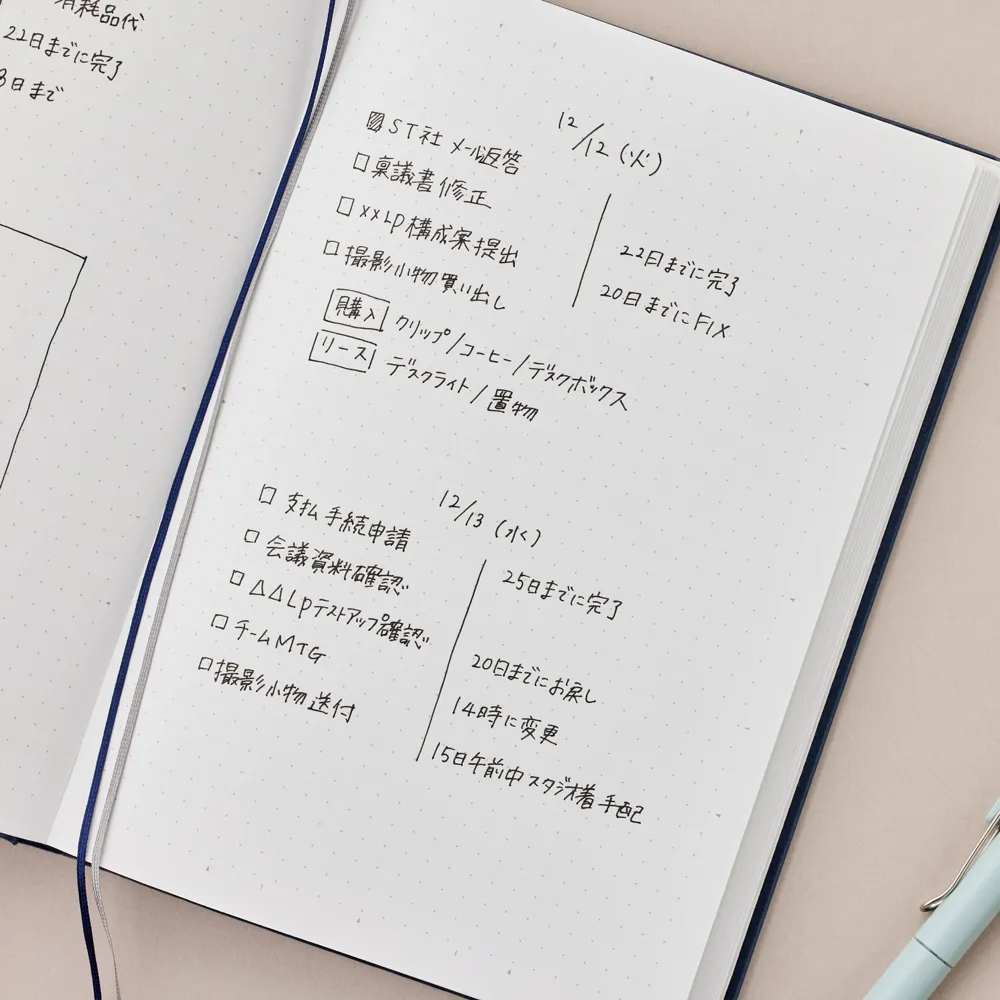 消耗品代
22日までに完了
8日まで
12/12(火)
▨ ST社 メール返答
□ 稟議書修正
□ ××LP構成案提出 22日までに完了
□ 撮影小物買い出し 20日までにFIX
購入 クリップ/コーヒー/デスクボックス
リース デスクライト/置物
12/13(水)
□ 支払手続申請 25日までに完了
□ 会議資料確認
□ △△LPテストアップ確認 20日までにお戻し
□ チームMTG 14時に変更
□ 撮影小物送付 15日午前中スタジオ着手配